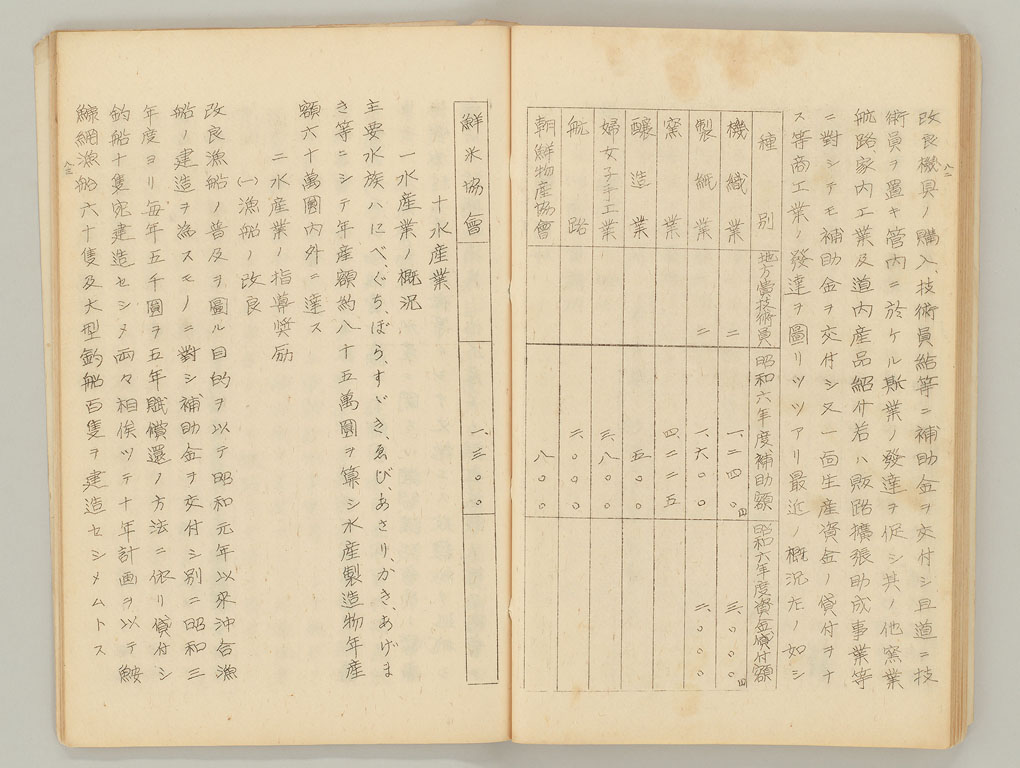 八二
改良機具ノ購入、技術員給等ニ補助金ヲ交付シ且道ニ技
術員ヲ置キ管内ニ於ケル斯業ノ發達ヲ促シ其ノ他窯業
航路家内工業及道内産品紹介若ハ販路擴張助成事業等
ニ對シテモ補助金ヲ交付シ又一面生産資金ノ貸付ヲナ
ス等商工業ノ發達ヲ圖リツツアリ最近ノ概況左ノ如シ
種別 地方費技術員 昭和六年度補助額 昭和六年度資金貸付額
機織業 二 一、二四〇円 三、〇〇〇円
製紙業 二 一、六〇〇 二、〇〇〇
窯業 四、二二五
釀造業 五〇〇
婦女子手工業 三、八〇〇
航路 三、〇〇〇
朝鮮物産協會 八〇〇
鮮米協會 一、三〇〇
十水産業
一水産業ノ概況
主要水族ハにべ、ぐち、ぼら、すゞき、ゑび、あさり、かき、あげま
き等ニシテ年産額約八十五萬圓ヲ算シ水産製造物年産
額六十萬圓内外ニ達ス
二水産業ノ指導奬励
(一)漁船ノ改良
改良漁船ノ普及ヲ圖ル目的ヲ以テ昭和元年以來沖合漁
船ノ建造ヲ為スモノニ對シ補助金ヲ交付シ別ニ昭和三
年度ヨリ毎年五千圓ヲ五年賦償還ノ方法ニ依リ貸付シ
釣船十隻宛建造セシメ両々相俟ツテ十年計画ヲ以テ鮟
鱇網漁船六十隻及大型釣船百隻ヲ建造セシメムトス
八三